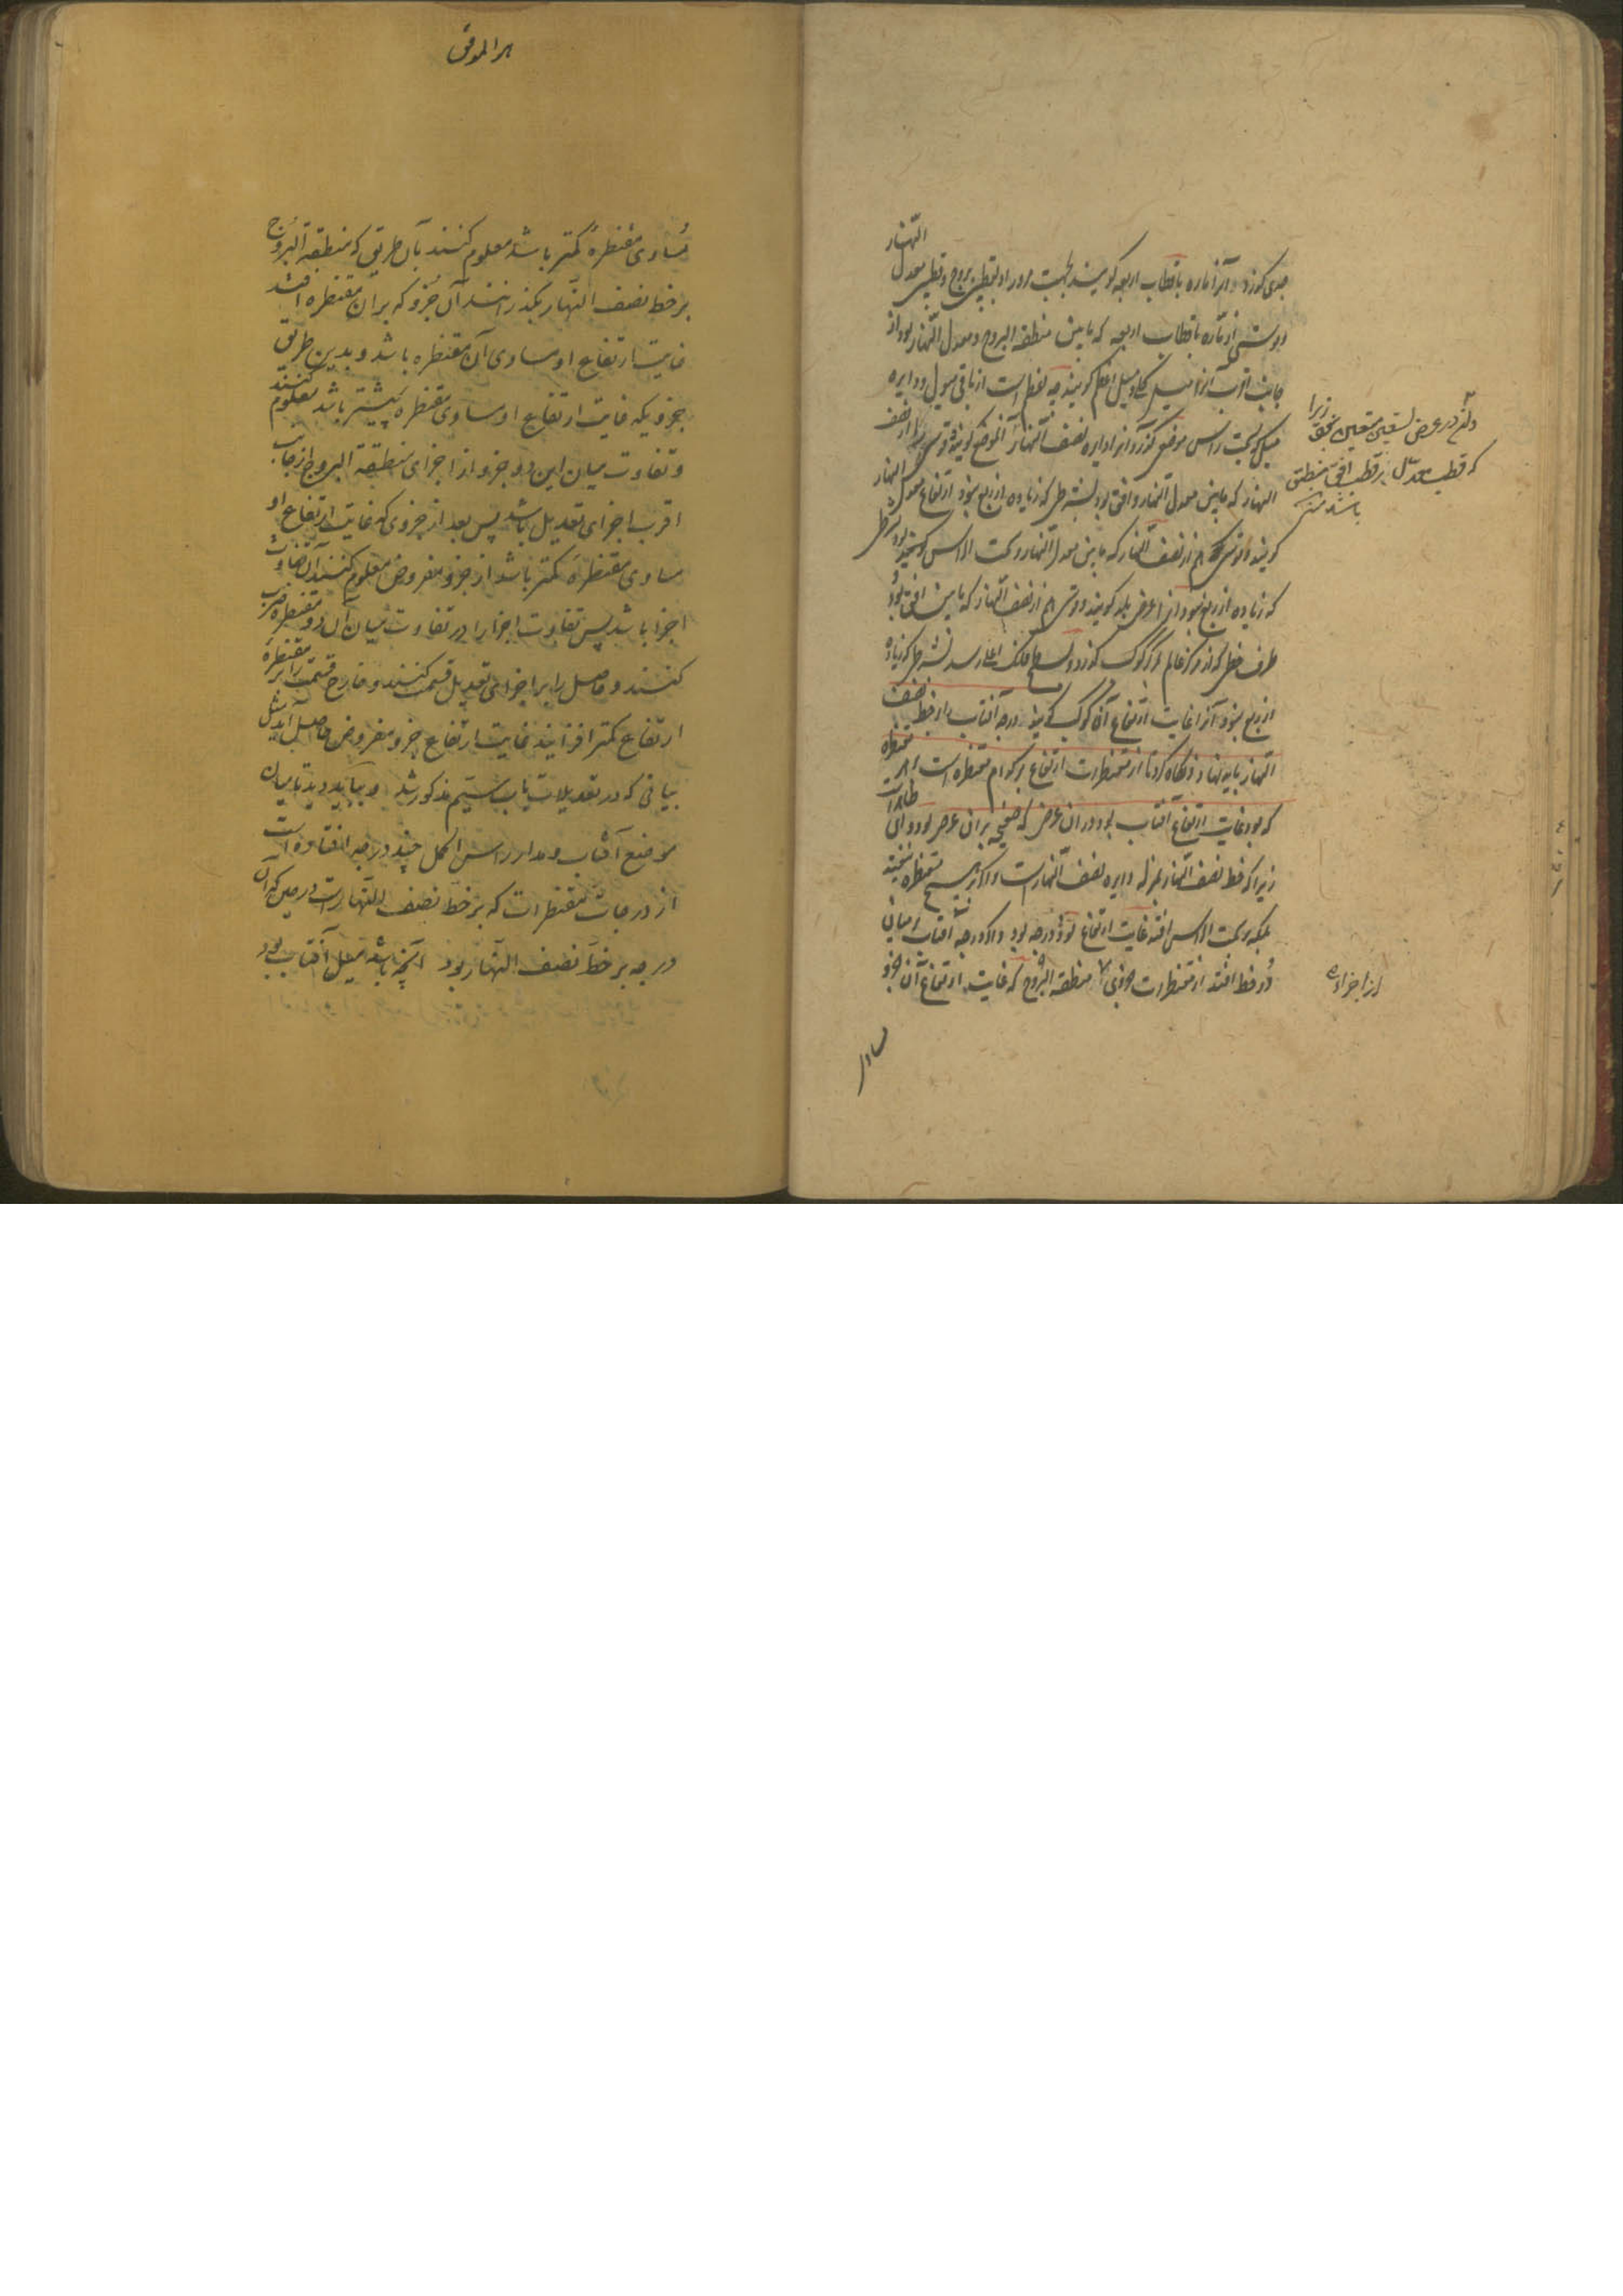 جدی گذرد و آنرا ماره باقطاب اربعه گویند بجهت مرور او بقطبین بروج و قطبین معدل النهار
و قوسی از ماره باقطاب اربعه که مابین منطقة البروج و معدل النهار بود از
جانب اقرب آنرا میل کلی و میل اعظم گویند چه اعظم است از باقی میول و دایره
میل که بسمت راس موضعی گذرد آنرا دایره نصف النهار آن موضع گویند و قوسی را از نصف
النهار که مابین معدل النهار و افق بود بشرطی که زیاده از ربع نبود ارتفاع معدل النهار
گویند و قوسی هم از نصف النهار که مابین معدل النهار و سمت الراس بود بشرطی
که زیاده از ربع نبود آنرا عرض بلد گویند و قوسی هم از نصف النهار که مابین افق بود
طرف خطی که از مرکز عالم بمرکز کوکب گذرد و بسطح فلک اعلی رسد بشرطی که زیاده
از ربع نبود آنرا غایت ارتفاع آن کوکب گویند درجه آفتاب را بر خط نصف
النهار باید نهاد و نگاه کرد تا از مقنطرات ارتفاع بر کدام مقنطره است هر مقنطره
که بود غایت ارتفاع آفتاب بود در آن عرض که صفیحه بر آن عرض بود و این ظاهر است
زیرا که خط نصف النهار بمنزله دایره نصف النهار است و اگر بر هیچ مقنطره نیفتد
بلکه بر سمت الراس افتد غایت ارتفاع نود درجه بود و اگر درجه آفتاب میانی
دو خط افتد از مقنطرات جزوی از منطقة البروج که غایت ارتفاع آن جزو
زیرا
که قطب معدل بر قطب افق منطبق
باشد منه
از اجزاء
مساوی
هو الموفق
مساوی مقنطره کمتر باشد معلوم کنند بآن طریق که منطقة البروج
بر خط نصف النهار بگذرانند آن جزو که بر آن مقنطره افتد
غایت ارتفاع او مساوی آن مقنطره باشد و بدین طریق
جزویکه غایت ارتفاع او مساوی مقنطره بیشتر باشد معلوم کنند
و تفاوت میان این دو جزو از اجزای منطقة البروج از جانب
اقرب اجزای تعدیل باشد پس بعد از جزوی که غایت ارتفاع او
مساوی مقنطره کمتر باشد از جزو مفروض معلوم کنند آن تفاوت
اجزا باشد پس تفاوت اجزا را در تفاوت میان آن دو مقنطره ضرب
کنند و حاصل را بر اجزای تعدیل قسمت کنند و خارج قسمت را بر مقنطره
ارتفاع کمتر افزایند غایت ارتفاع جزو مفروض حاصل آید بمثل
بیانی که در تعدیلات باب سیم مذکور شد و بباید دید تا میان
موضع آفتاب و مدار راس الحمل چند درجه افتاده است
از درجات مقنطرات که بر خط نصف النهار است در حین که آن
درجه بر خط نصف النهار بود آنچه باشد میل آفتاب بود